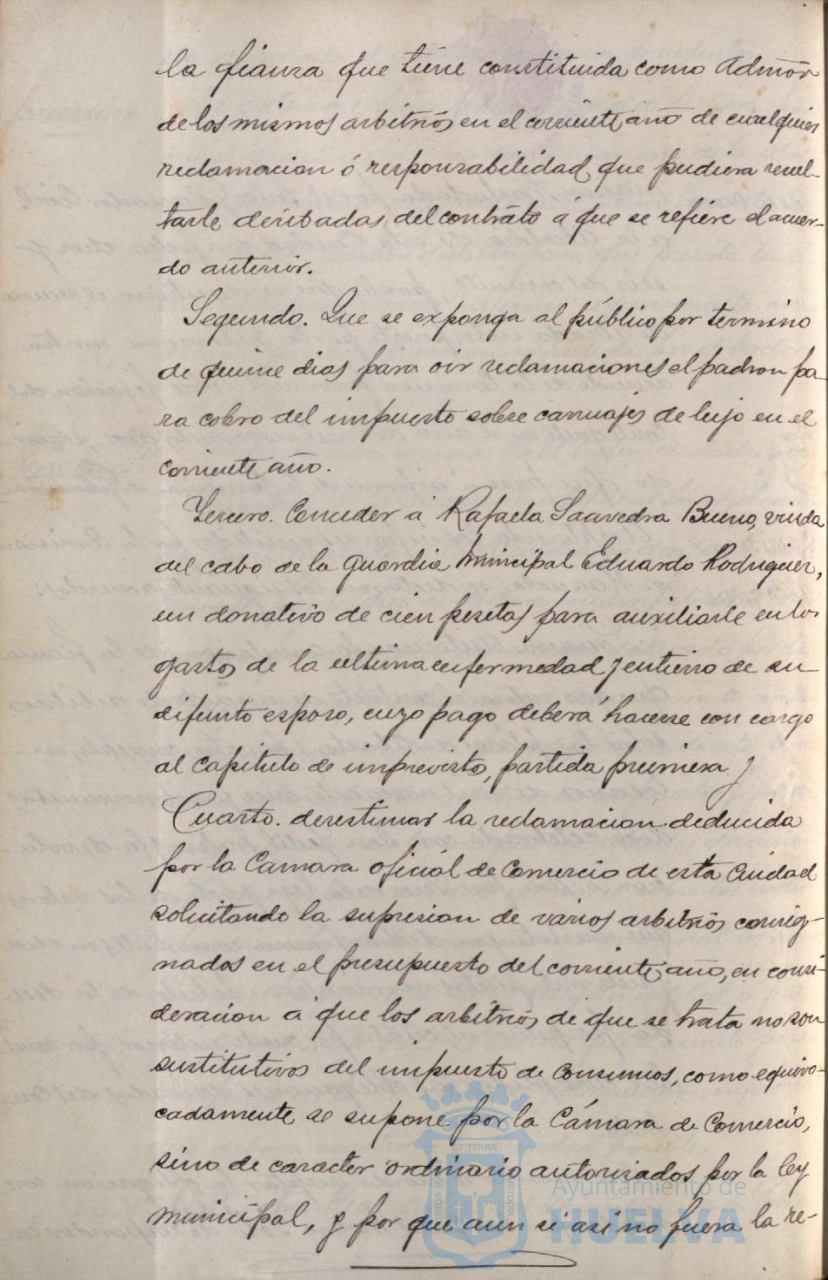 la fianza que tiene constituida como Admõr
de los mismos arbitrios en el corriente año de cualquier
reclamacion ó responsabilidad que pudiera resul-
tarle deribadas del contrato á que se refiere el acuer-
do anterior.
Segundo. Que se exponga al público por termino
de quince dias para oir reclamaciones el padron pa-
ra cobro del impuesto sobre carruajes de lujo en el
corriente año.
Tercero. Conceder á Rafaela Saavedra Bueno, viuda
del cabo de la guardia municipal Eduardo Rodriguez,
un donativo de cien pesetas para auxiliarle en los
gastos de la ultima enfermedad y entierro de su
difunto esposo, cuyo pago deberá hacerse con cargo
al capitulo de imprevisto, partida primera y
Cuarto. desestimar la reclamacion deducida
por la Camara oficial de Comercio de esta Ciudad
solicitando la supresion de varios arbitrios consig-
nados en el presupuesto del corriente año, en consi-
deracion á que los arbitrios de que se trata no son
sustitutivos del impuesto de Consumos, como equivo-
cadamente se supone por la Cámara de Comercio,
sino de caracter ordinario autorizados por la ley
municipal, y por que aun si asi no fuera la re-
Ayuntamiento de
HUELVA